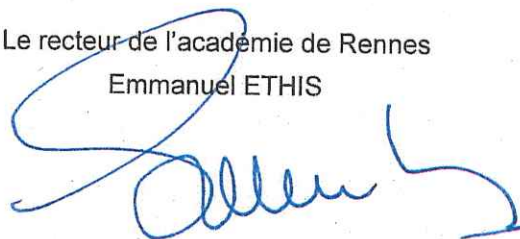 Le recteur de l'académie de Rennes
Emmanuel ETHIS